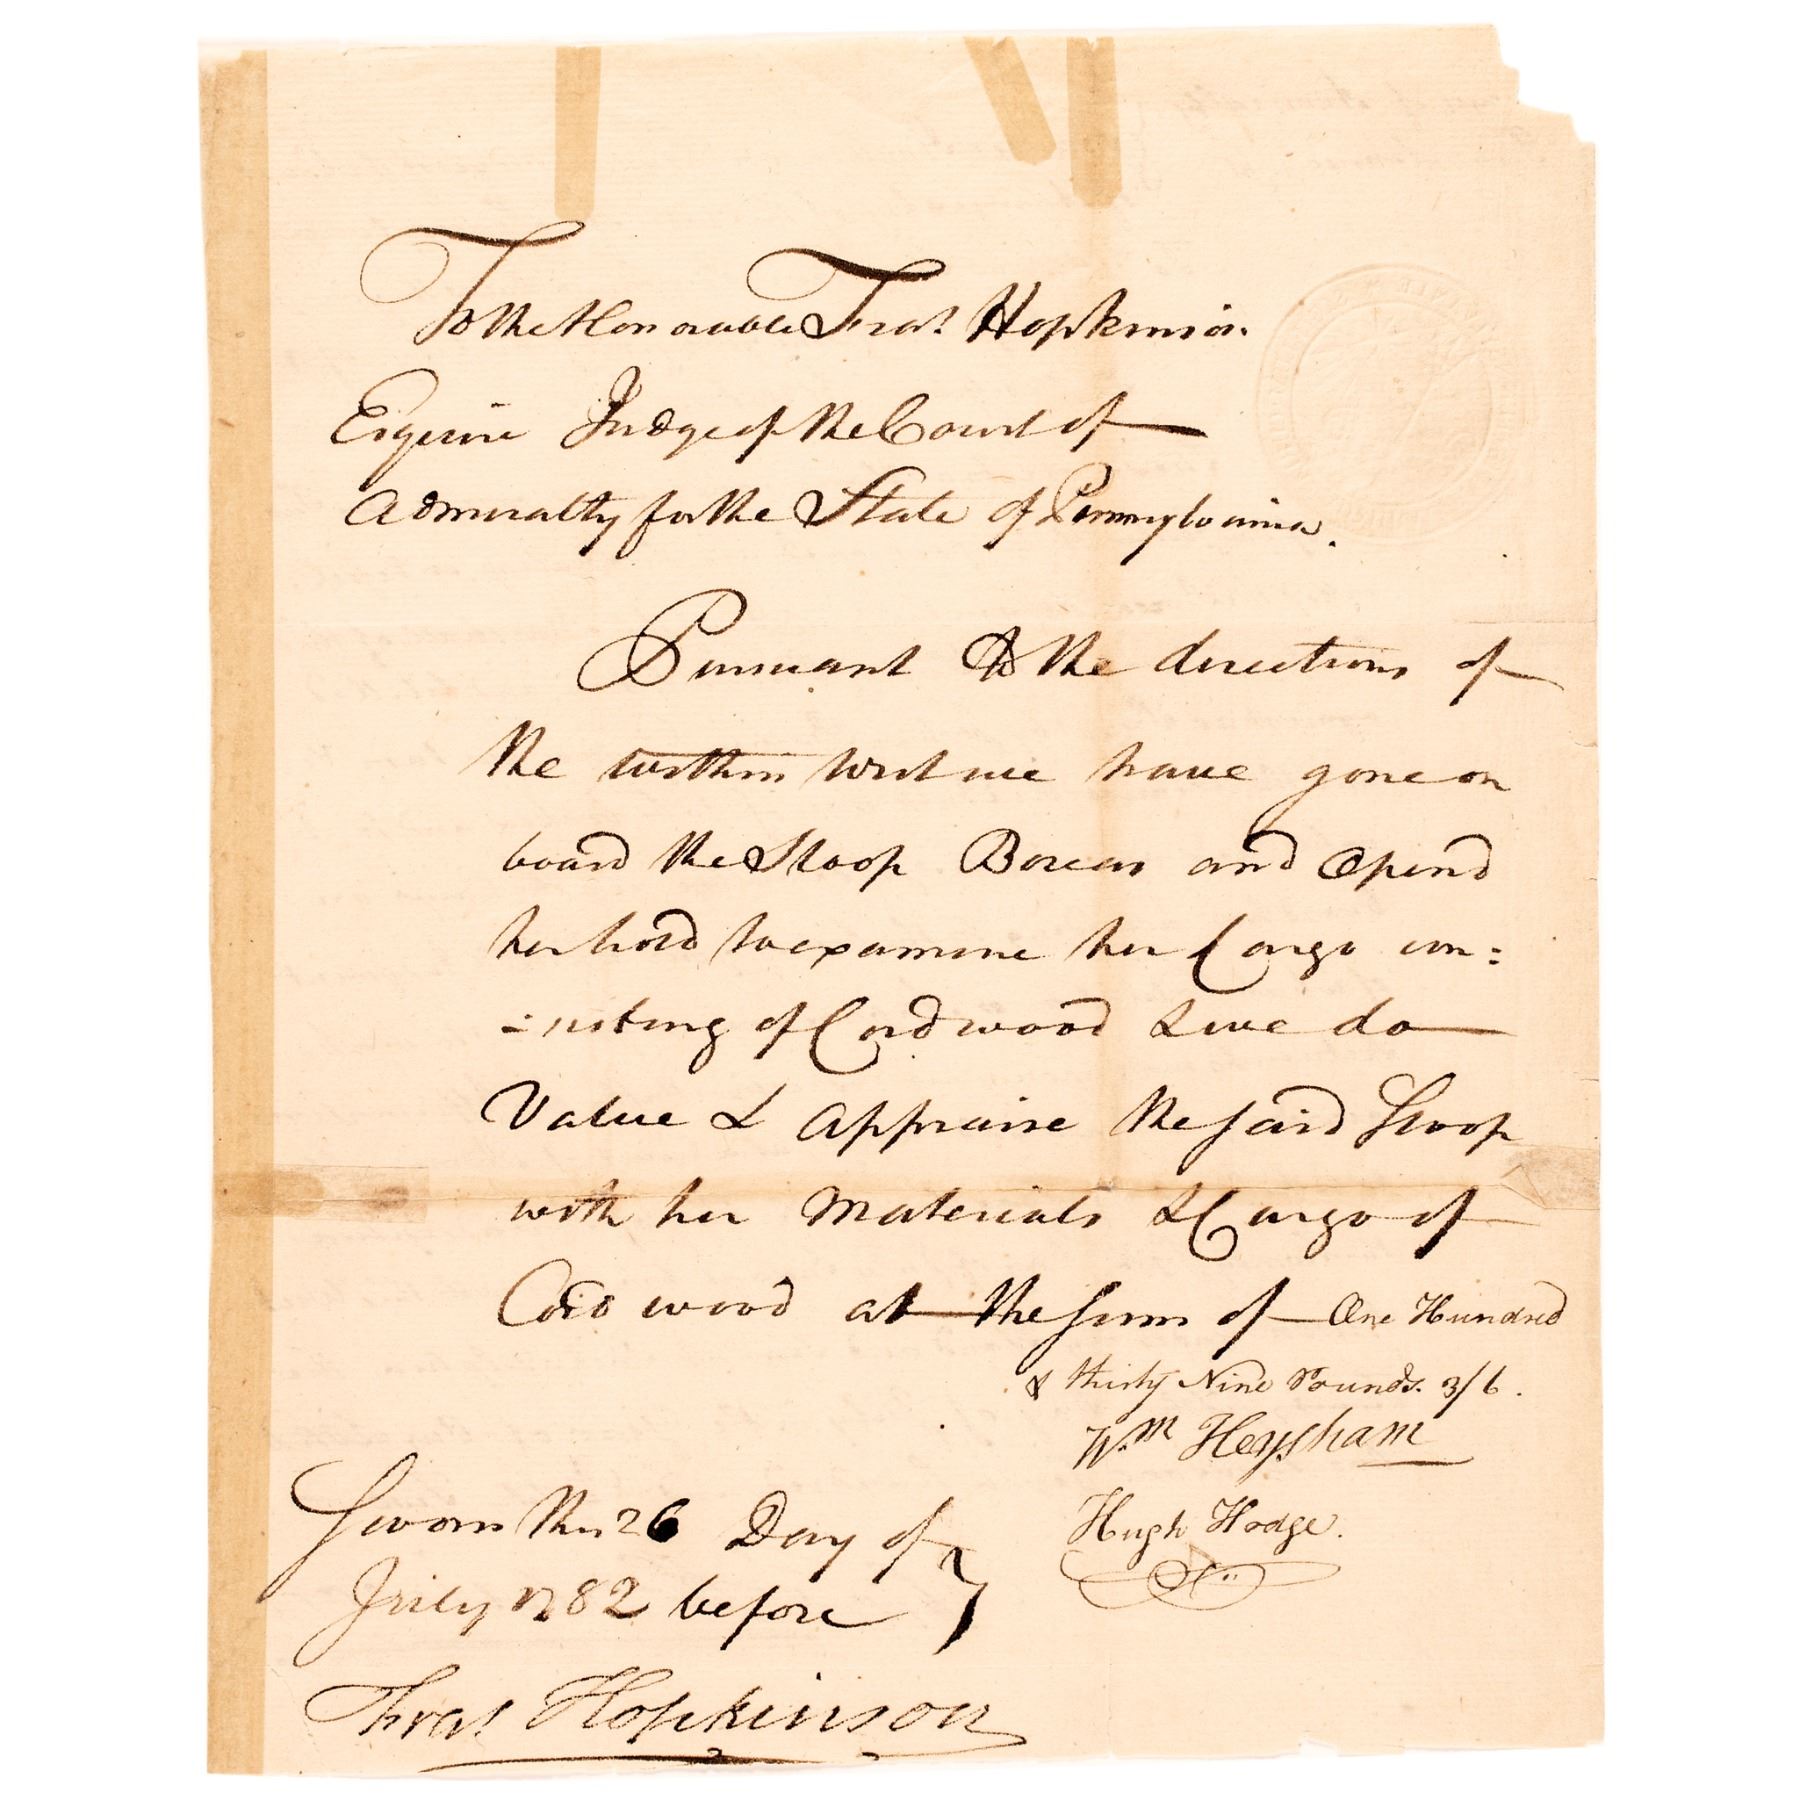 To the Honorable Fras. Hopkinson
Esquire Judge of the Court of
Admiralty for the State of Pennsylvania.
Pursuant to the directions of
the within Writ we have gone on
board the Sloop Boreas and Opend
her hold to examine her Cargo con=
=sisting of Cordwood & we do
Value & Appraise the said Sloop
with her Materials & Cargo of
Cord wood at the sum of One Hundred
& thirty Nine Pounds. 3/6.
Wm Heysham
Hugh Hodge.
Sworn this 26 Day of
July 1782 before
Fras. Hopkinson